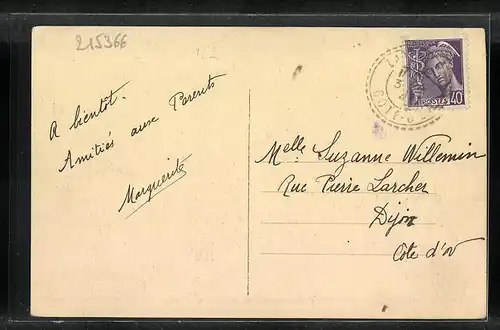 215366
A bientôt.
Amitiés aux Parents
Marguerite
POSTES 40
Melle Suzanne Willemin
Rue Pierre Larcher
Dijon
Côte d'Or